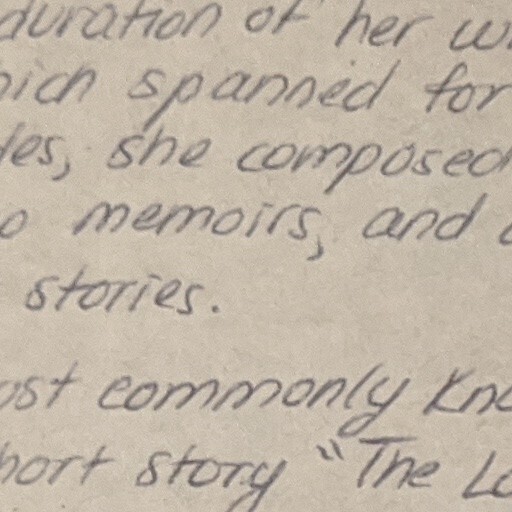 duration of her w
hich spanned for
des, she composed
o memoirs, and
stories.
ost commonly kno
hort story "The Lo